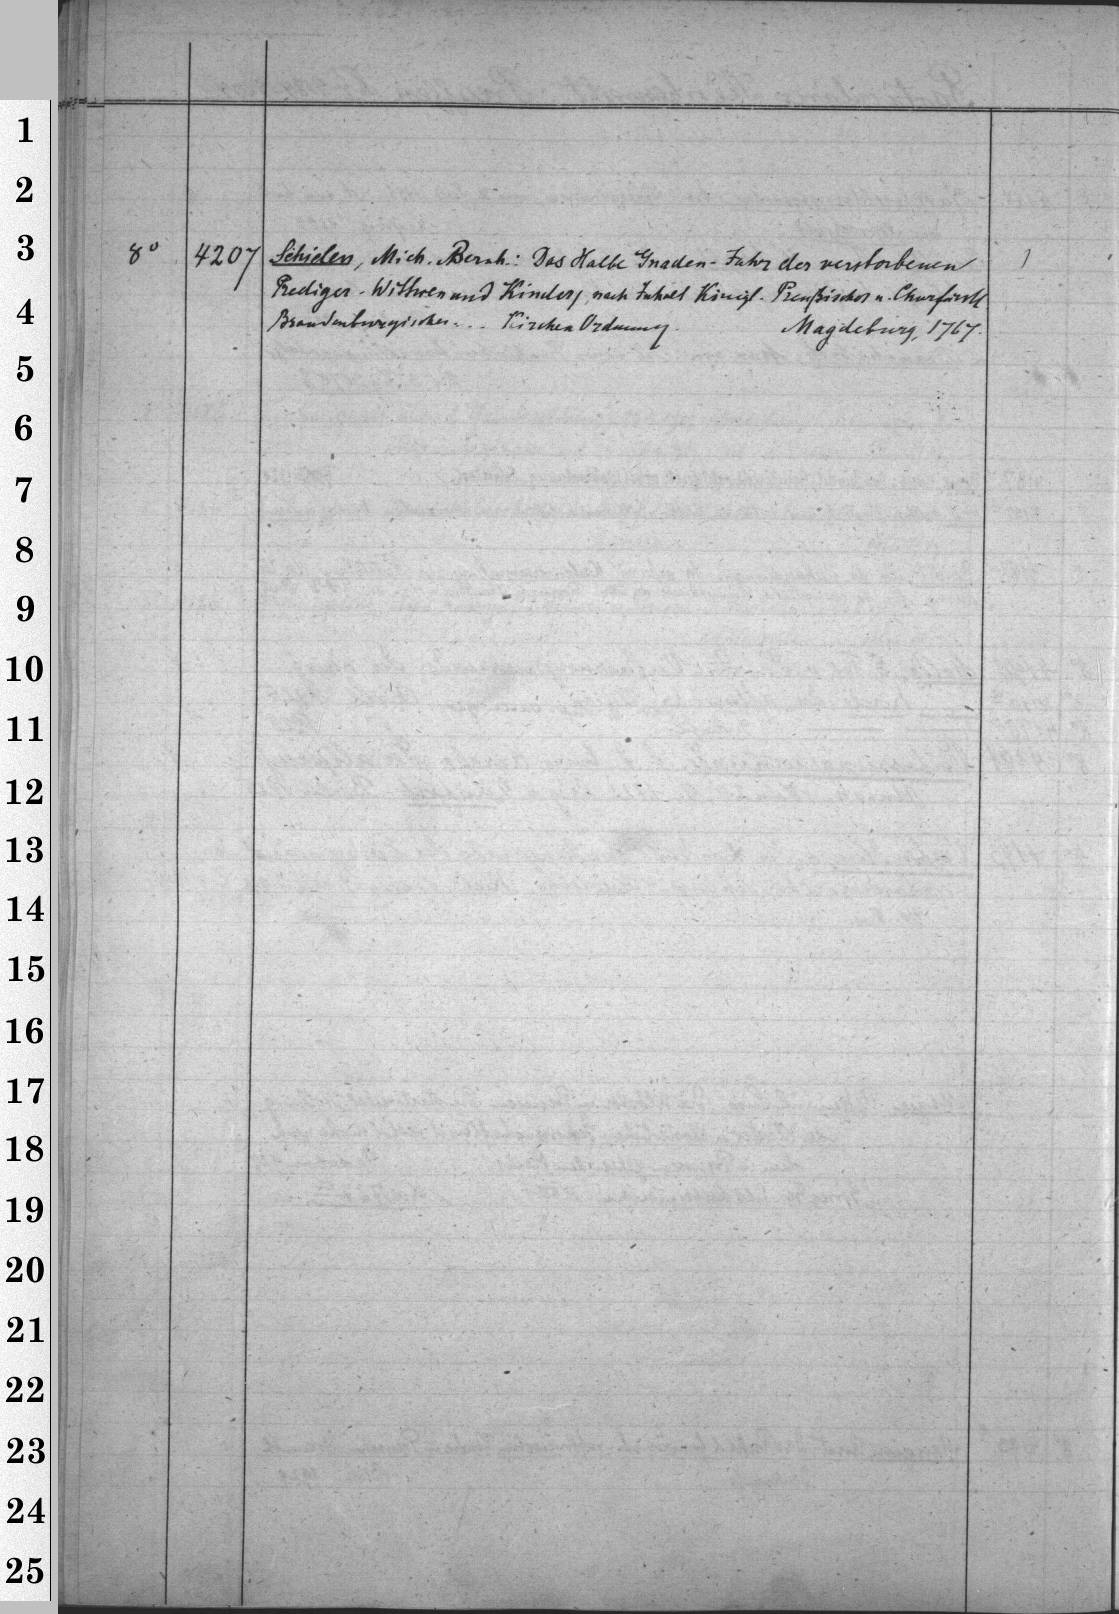 1
2
3
4
5
6
7
8
9
10
11
12
13
14
15
16
17
18
19
20
21
22
23
24
25
8° 4207 Schielen, Mich. Bernh.: Das Halbe Gnaden-Jahr der verstorbenen 1
Prediger-Wittwen und Kinder, nach Inhalt Königl. Preußischer u. Churfürstl
Brandenburgischer ... Kirchen Ordnung. Magdeburg, 1767.